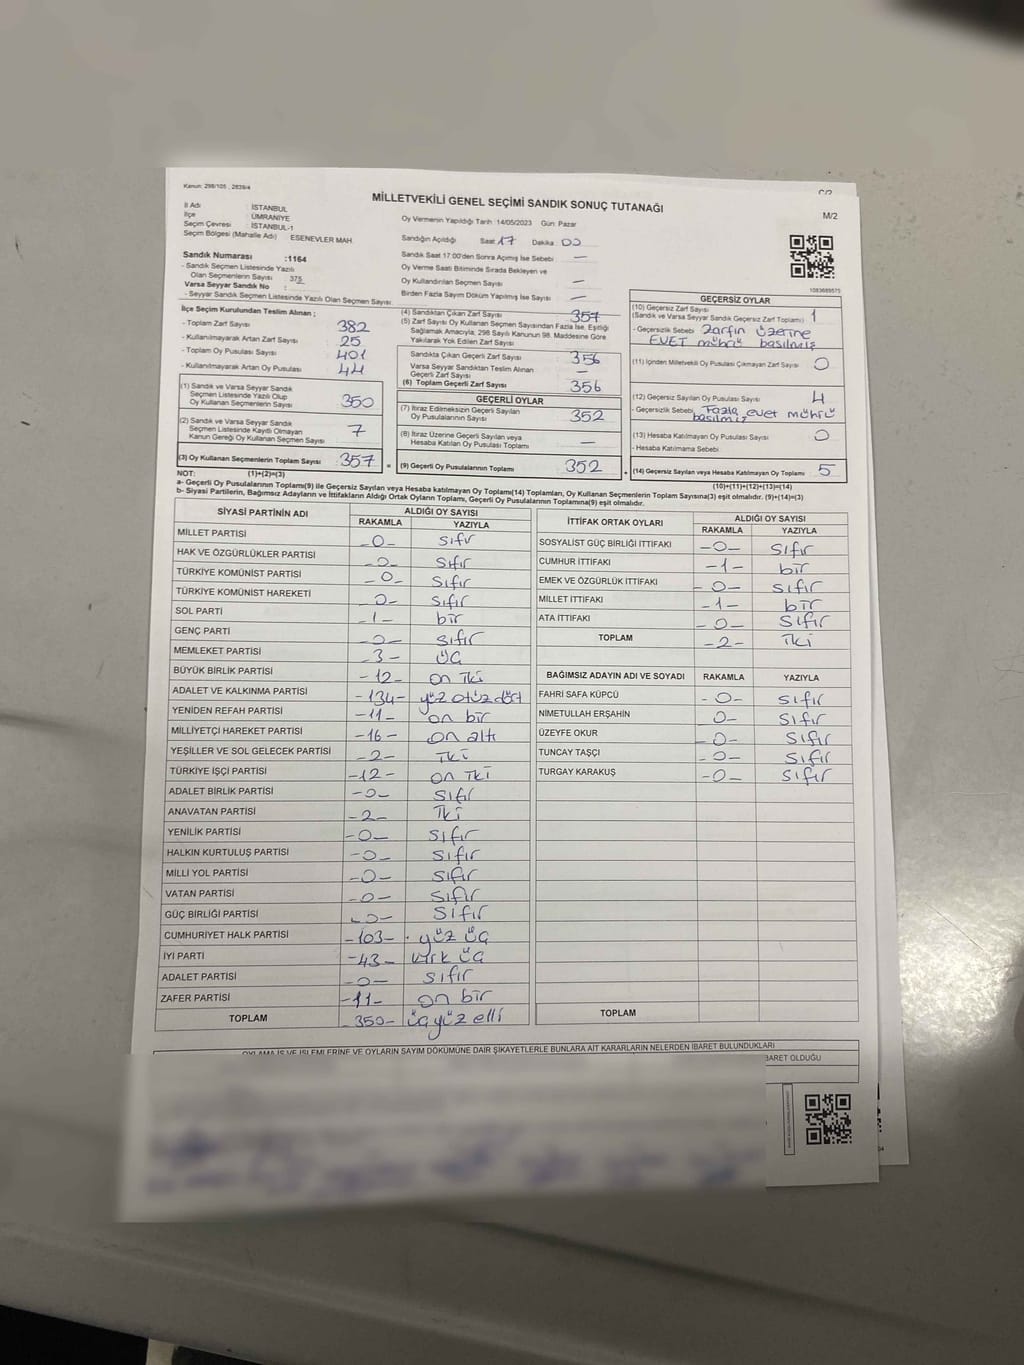 Kanun: 298/105 , 2839/4
MİLLETVEKİLİ GENEL SEÇİMİ SANDIK SONUÇ TUTANAĞI
M/2
İl Adı : İSTANBUL
İlçe : ÜMRANİYE
Seçim Çevresi : İSTANBUL-1
Seçim Bölgesi (Mahalle Adı) ESENEVLER MAH.
Oy Vermenin Yapıldığı Tarih :14/05/2023 Gün: Pazar
Sandığın Açıldığı Saat 17 Dakika : 00
Sandık Saat 17.00'den Sonra Açılmış İse Sebebi —
Oy Verme Saati Bitiminde Sırada Bekleyen ve
Oy Kullandırılan Seçmen Sayısı —
Birden Fazla Sayım Döküm Yapılmış İse Sayısı —
Sandık Numarası :1164
- Sandık Seçmen Listesinde Yazılı
Olan Seçmenlerin Sayısı 375
Varsa Seyyar Sandık No :
- Seyyar Sandık Seçmen Listesinde Yazılı Olan Seçmen Sayısı
1083689575
İlçe Seçim Kurulundan Teslim Alınan ;
- Toplam Zarf Sayısı 382
- Kullanılmayarak Artan Zarf Sayısı 25
- Toplam Oy Pusulası Sayısı 401
- Kullanılmayarak Artan Oy Pusulası 44
(1) Sandık ve Varsa Seyyar Sandık
Seçmen Listesinde Yazılı Olup
Oy Kullanan Seçmenlerin Sayısı 350
(2) Sandık ve Varsa Seyyar Sandık
Seçmen Listesinde Kayıtlı Olmayan
Kanun Gereği Oy Kullanan Seçmen Sayısı 7
(3) Oy Kullanan Seçmenlerin Toplam Sayısı 357 =
(1)+(2)=(3)
(4) Sandıktan Çıkan Zarf Sayısı 357
(5) Zarf Sayısı Oy Kullanan Seçmen Sayısından Fazla İse, Eşitliği
Sağlamak Amacıyla, 298 Sayılı Kanunun 98. Maddesine Göre
Yakılarak Yok Edilen Zarf Sayısı
Sandıkta Çıkan Geçerli Zarf Sayısı 356
Varsa Seyyar Sandıktan Teslim Alınan
Geçerli Zarf Sayısı —
(6) Toplam Geçerli Zarf Sayısı 356
GEÇERLİ OYLAR
(7) İtiraz Edilmeksizin Geçerli Sayılan
Oy Pusulalarının Sayısı 352
(8) İtiraz Üzerine Geçerli Sayılan veya
Hesaba Katılan Oy Pusulası Toplamı —
(9) Geçerli Oy Pusulalarının Toplamı 352 +
GEÇERSİZ OYLAR
(10) Geçersiz Zarf Sayısı
(Sandık ve Varsa Seyyar Sandık Geçersiz Zarf Toplamı) 1
- Geçersizlik Sebebi Zarfın üzerine
EVET mührü basılmış
(11) İçinden Milletvekili Oy Pusulası Çıkmayan Zarf Sayısı 0
(12) Geçersiz Sayılan Oy Pusulası Sayısı 4
- Geçersizlik Sebebi Fazla evet mührü
basılmış
(13) Hesaba Katılmayan Oy Pusulası Sayısı 0
- Hesaba Katılmama Sebebi
(14) Geçersiz Sayılan veya Hesaba Katılmayan Oy Toplamı 5
(10)+(11)+(12)+(13)=(14)
NOT:
a- Geçerli Oy Pusulalarının Toplamı(9) ile Geçersiz Sayılan veya Hesaba katılmayan Oy Toplamı(14) Toplamları, Oy Kullanan Seçmenlerin Toplam Sayısına(3) eşit olmalıdır. (9)+(14)=(3)
b- Siyasi Partilerin, Bağımsız Adayların ve İttifakların Aldığı Ortak Oyların Toplamı, Geçerli Oy Pusulalarının Toplamına(9) eşit olmalıdır.
SİYASİ PARTİNİN ADI ALDIĞI OY SAYISI
RAKAMLA YAZIYLA
MİLLET PARTİSİ -0- sıfır
HAK VE ÖZGÜRLÜKLER PARTİSİ -0- sıfır
TÜRKİYE KOMÜNİST PARTİSİ -0- sıfır
TÜRKİYE KOMÜNİST HAREKETİ -0- sıfır
SOL PARTİ -1- bir
GENÇ PARTİ -0- sıfır
MEMLEKET PARTİSİ -3- üç
BÜYÜK BİRLİK PARTİSİ -12- on iki
ADALET VE KALKINMA PARTİSİ -134- yüz otüz dört
YENİDEN REFAH PARTİSİ -11- on bir
MİLLİYETÇİ HAREKET PARTİSİ -16- on altı
YEŞİLLER VE SOL GELECEK PARTİSİ -2- iki
TÜRKİYE İŞÇİ PARTİSİ -12- on iki
ADALET BİRLİK PARTİSİ -0- sıfır
ANAVATAN PARTİSİ -2- iki
YENİLİK PARTİSİ -0- sıfır
HALKIN KURTULUŞ PARTİSİ -0- sıfır
MİLLİ YOL PARTİSİ -0- sıfır
VATAN PARTİSİ -0- sıfır
GÜÇ BİRLİĞİ PARTİSİ -0- sıfır
CUMHURİYET HALK PARTİSİ -103- yüz üç
İYİ PARTİ -43- kırk üç
ADALET PARTİSİ -0- sıfır
ZAFER PARTİSİ -11- on bir
TOPLAM -350- üçyüz elli
İTTİFAK ORTAK OYLARI ALDIĞI OY SAYISI
RAKAMLA YAZIYLA
SOSYALİST GÜÇ BİRLİĞİ İTTİFAKI -0- sıfır
CUMHUR İTTİFAKI -1- bir
EMEK VE ÖZGÜRLÜK İTTİFAKI -0- sıfır
MİLLET İTTİFAKI -1- bir
ATA İTTİFAKI -0- sıfır
TOPLAM -2- iki
BAĞIMSIZ ADAYIN ADI VE SOYADI RAKAMLA YAZIYLA
FAHRİ SAFA KÜPCÜ -0- sıfır
NİMETULLAH ERŞAHİN 0- sıfır
ÜZEYFE OKUR -0- sıfır
TUNCAY TAŞÇI -0- sıfır
TURGAY KARAKUŞ -0- sıfır
TOPLAM
OYLAMA İŞ VE İŞLEMLERİNE VE OYLARIN SAYIM DÖKÜMÜNE DAİR ŞİKAYETLERLE BUNLARA AİT KARARLARIN NELERDEN İBARET BULUNDUKLARI
İBARET OLDUĞU